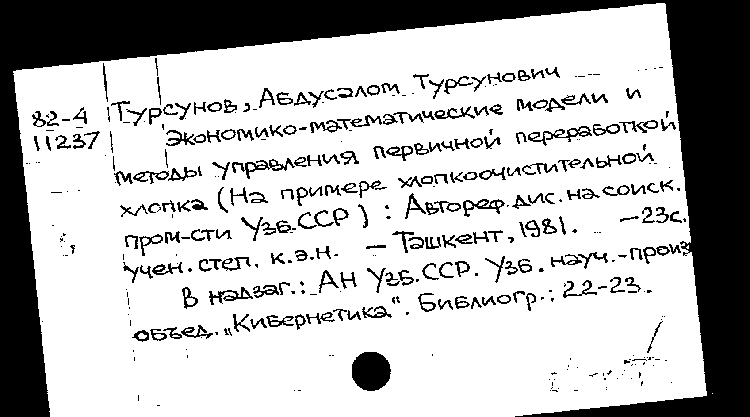 82-4 Турсунов, Абдусалом Турсунович
11237 Экономико-математические модели и
методы управления первичной переработкой
хлопка (На примере хлопкоочистительной
пром-сти Узб.ССР) : Автореф.дис. на соиск.
учен. степ. к.э.н. – Ташкент, 1981. – 23с.
В надзаг.: АН Узб.ССР. Узб. науч.-произв
объед. „Кибернетика“. Библиогр.: 22-23.